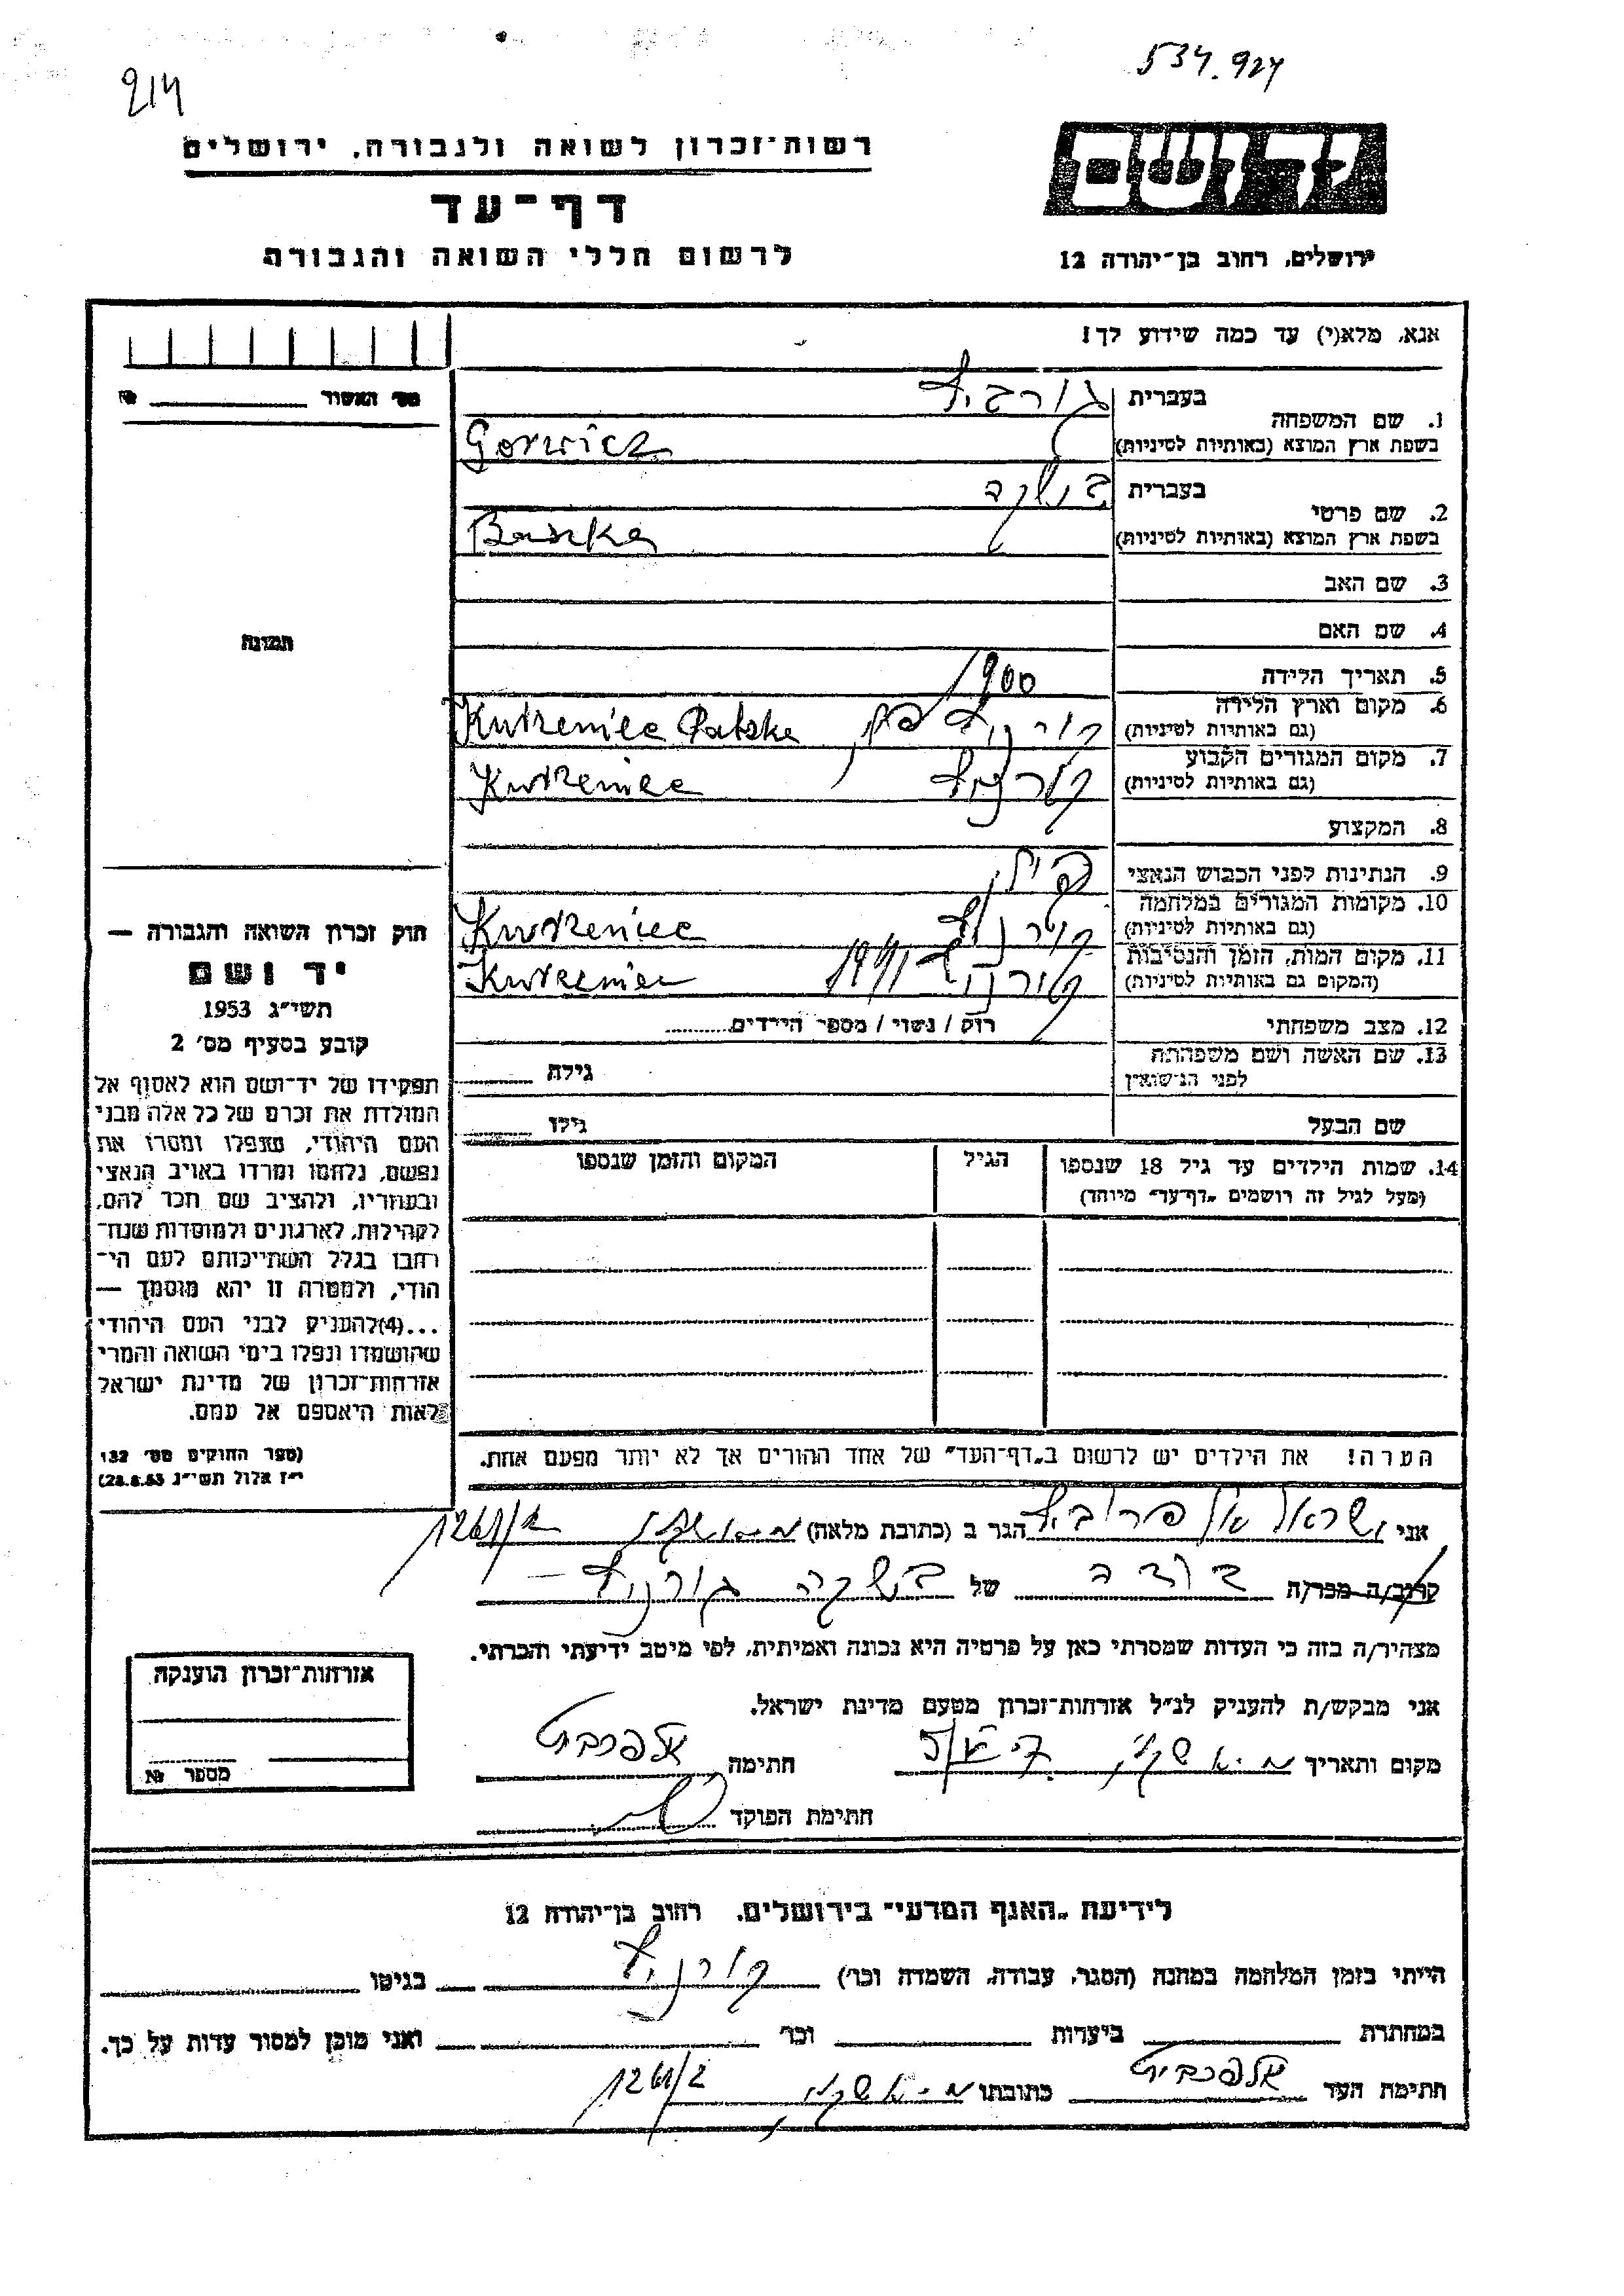 534.924
214
רשות־זכרון לשואה ולגבורה, ירושלים
דף־עד
לרשום חללי השואה והגבורה
יד ושם
ירושלים, רחוב בן־יהודה 12
אנא, מלא(י) עד כמה שידוע לך!
מס׳ האשור № 
1. שם המשפחה
בעברית
בשפת ארץ המוצא (באותיות לטיניות)
Gorwicz
2. שם פרטי
בעברית בושקה
בשפת ארץ המוצא (באותיות לטיניות)
Baszka
3. שם האב
4. שם האם
תמונה
5. תאריך הלידה 1900
6. מקום וארץ הלידה
(גם באותיות לטיניות)
קורניץ Kurzeniec Polska
7. מקום המגורים הקבוע
(גם באותיות לטיניות)
קורניץ Kurzeniec
8. המקצוע
9. הנתינות לפני הכבוש הנאצי
10. מקומות המגורים במלחמה
(גם באותיות לטיניות)
קורניץ Kurzeniec
11. מקום המות, הזמן והנסיבות
(המקום גם באותיות לטיניות)
קורניץ 1941 Kurzeniec
12. מצב משפחתי רוק / נשוי / מספר הילדים
13. שם האשה ושם משפחתה
לפני הנישואין
גילה
שם הבעל גילו
14. שמות הילדים עד גיל 18 שנספו
(מעל לגיל זה רושמים „דף־עד״ מיוחד)
הגיל
המקום והזמן שנספו
הערה! את הילדים יש לרשום ב„דף־העד״ של אחד ההורים אך לא יותר מפעם אחת.
חוק זכרון השואה והגבורה —
יד ושם
תשי״ג 1953
קובע בסעיף מס׳ 2
תפקידו של יד־ושם הוא לאסוף אל
המולדת את זכרם של כל אלה מבני
העם היהודי, שנפלו ומסרו את
נפשם, נלחמו ומרדו באויב הנאצי
ובעוזריו, ולהציב שם וזכר להם,
לקהילות, לארגונים ולמוסדות שנח־
רבו בגלל השתייכותם לעם הי־
הודי, ולמטרה זו יהא מוסמך —
...(4)להעניק לבני העם היהודי
שהושמדו ונפלו בימי השואה והמרי
אזרחות־זכרון של מדינת ישראל
לאות היאספם אל עמם.
(ספר החוקים מס׳ 132,
י״ז אלול תשי״ג 28.8.53)
אני ישראל הגר ב (כתובת מלאה) 1261/2
קרוב/ה מכר/ה דודה של בושקה
מצהיר/ה בזה כי העדות שמסרתי כאן על פרטיה היא נכונה ואמיתית, לפי מיטב ידיעתי והכרתי.
אני מבקש/ת להעניק לנ״ל אזרחות־זכרון מטעם מדינת ישראל.
מקום ותאריך חתימה
חתימת הפוקד
אזרחות־זכרון הוענקה
מספר №
לידיעת „האגף המדעי״ בירושלים, רחוב בן־יהודה 12
הייתי בזמן המלחמה במחנה (הסגר, עבודה, השמדה וכו׳) קורניץ בגיטו
במחתרת ביערות וכו׳ ואני מוכן למסור עדות על כך.
חתימת העד כתובתו 1261/2